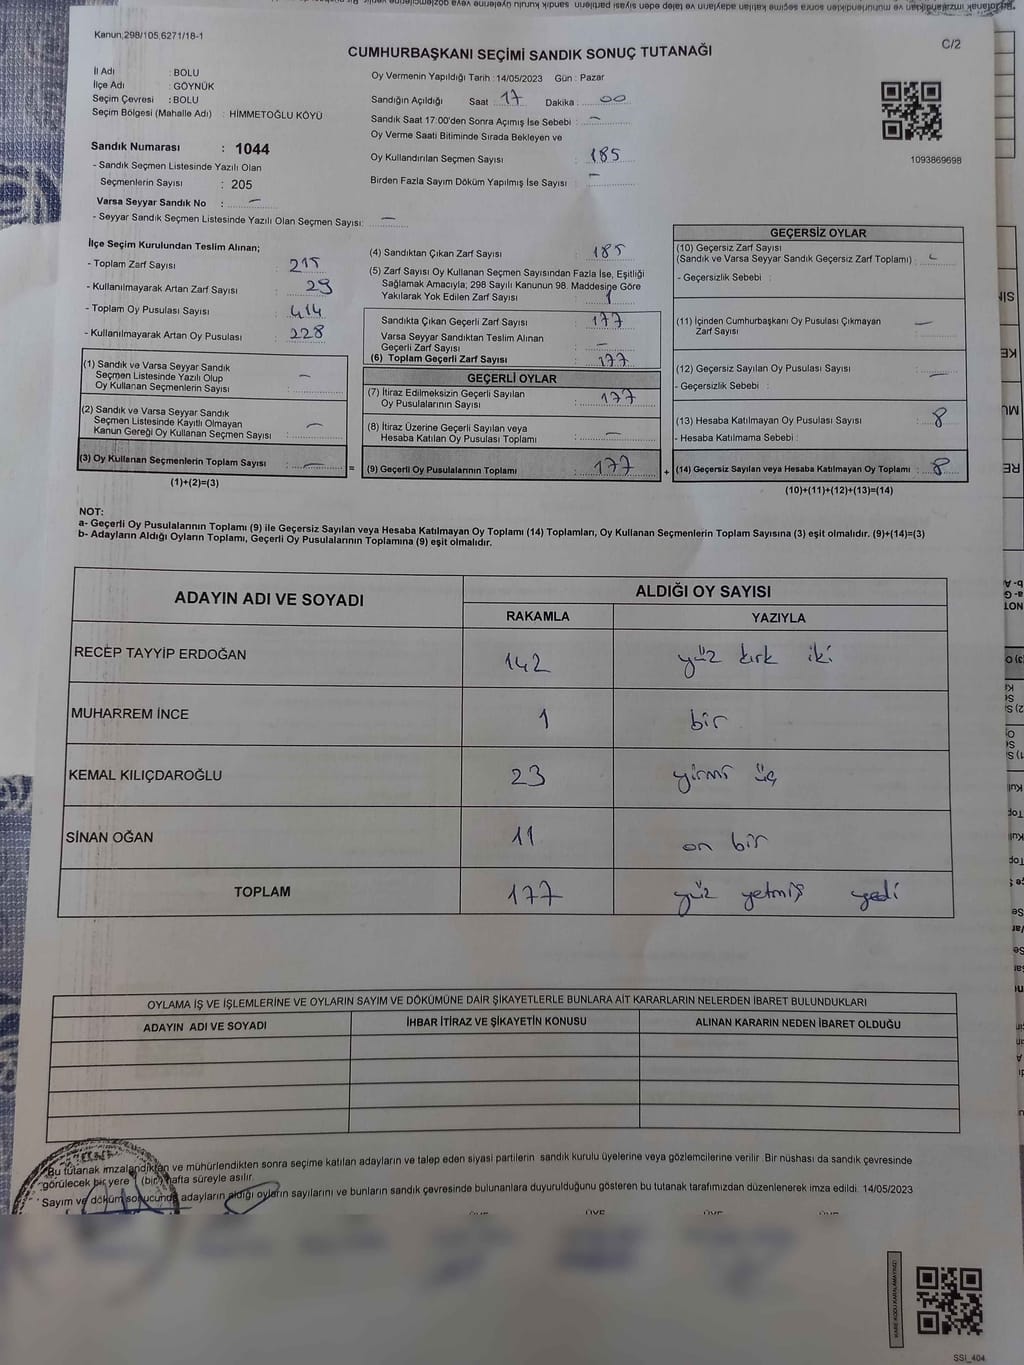 Kanun;298/105,6271/18-1
C/2
CUMHURBAŞKANI SEÇİMİ SANDIK SONUÇ TUTANAĞI
İl Adı : BOLU
İlçe Adı : GÖYNÜK
Seçim Çevresi : BOLU
Seçim Bölgesi (Mahalle Adı) : HİMMETOĞLU KÖYÜ
Sandık Numarası : 1044
- Sandık Seçmen Listesinde Yazılı Olan
Seçmenlerin Sayısı : 205
Varsa Seyyar Sandık No : —
- Seyyar Sandık Seçmen Listesinde Yazılı Olan Seçmen Sayısı: —
Oy Vermenin Yapıldığı Tarih : 14/05/2023 Gün : Pazar
Sandığın Açıldığı Saat : 17 Dakika : 00
Sandık Saat 17:00'den Sonra Açımış İse Sebebi : —
Oy Verme Saati Bitiminde Sırada Bekleyen ve
Oy Kullandırılan Seçmen Sayısı : 185
Birden Fazla Sayım Döküm Yapılmış İse Sayısı : —
1093869698
İlçe Seçim Kurulundan Teslim Alınan;
- Toplam Zarf Sayısı : 215
- Kullanılmayarak Artan Zarf Sayısı : 29
- Toplam Oy Pusulası Sayısı : 414
- Kullanılmayarak Artan Oy Pusulası : 228
(1) Sandık ve Varsa Seyyar Sandık
Seçmen Listesinde Yazılı Olup
Oy Kullanan Seçmenlerin Sayısı : —
(2) Sandık ve Varsa Seyyar Sandık
Seçmen Listesinde Kayıtlı Olmayan
Kanun Gereği Oy Kullanan Seçmen Sayısı : —
(3) Oy Kullanan Seçmenlerin Toplam Sayısı : —
(1)+(2)=(3)
=
(4) Sandıktan Çıkan Zarf Sayısı : 185
(5) Zarf Sayısı Oy Kullanan Seçmen Sayısından Fazla İse, Eşitliği
Sağlamak Amacıyla; 298 Sayılı Kanunun 98. Maddesine Göre
Yakılarak Yok Edilen Zarf Sayısı : 1
Sandıkta Çıkan Geçerli Zarf Sayısı : 177
Varsa Seyyar Sandıktan Teslim Alınan
Geçerli Zarf Sayısı : —
(6) Toplam Geçerli Zarf Sayısı : 177
GEÇERLİ OYLAR
(7) İtiraz Edilmeksizin Geçerli Sayılan
Oy Pusulalarının Sayısı : 177
(8) İtiraz Üzerine Geçerli Sayılan veya
Hesaba Katılan Oy Pusulası Toplamı : —
(9) Geçerli Oy Pusulalarının Toplamı : 177
+
GEÇERSİZ OYLAR
(10) Geçersiz Zarf Sayısı
(Sandık ve Varsa Seyyar Sandık Geçersiz Zarf Toplamı) :
- Geçersizlik Sebebi :
(11) İçinden Cumhurbaşkanı Oy Pusulası Çıkmayan
Zarf Sayısı : —
(12) Geçersiz Sayılan Oy Pusulası Sayısı : —
- Geçersizlik Sebebi :
(13) Hesaba Katılmayan Oy Pusulası Sayısı : 8
- Hesaba Katılmama Sebebi :
(14) Geçersiz Sayılan veya Hesaba Katılmayan Oy Toplamı : 8
(10)+(11)+(12)+(13)=(14)
NOT:
a- Geçerli Oy Pusulalarının Toplamı (9) ile Geçersiz Sayılan veya Hesaba Katılmayan Oy Toplamı (14) Toplamları, Oy Kullanan Seçmenlerin Toplam Sayısına (3) eşit olmalıdır. (9)+(14)=(3)
b- Adayların Aldığı Oyların Toplamı, Geçerli Oy Pusulalarının Toplamına (9) eşit olmalıdır.
ADAYIN ADI VE SOYADI ALDIĞI OY SAYISI
RAKAMLA YAZIYLA
RECEP TAYYİP ERDOĞAN 142 yüz kırk iki
MUHARREM İNCE 1 bir
KEMAL KILIÇDAROĞLU 23 yirmi üç
SİNAN OĞAN 11 on bir
TOPLAM 177 yüz yetmiş yedi
OYLAMA İŞ VE İŞLEMLERİNE VE OYLARIN SAYIM VE DÖKÜMÜNE DAİR ŞİKAYETLERLE BUNLARA AİT KARARLARIN NELERDEN İBARET BULUNDUKLARI
ADAYIN ADI VE SOYADI İHBAR İTİRAZ VE ŞİKAYETİN KONUSU ALINAN KARARIN NEDEN İBARET OLDUĞU
Bu tutanak imzalandıktan ve mühürlendikten sonra seçime katılan adayların ve talep eden siyasi partilerin sandık kurulu üyelerine veya gözlemcilerine verilir. Bir nüshası da sandık çevresinde
görülecek bir yere 1 (bir) hafta süreyle asılır.
Sayım ve döküm sonucunda adayların aldığı oyların sayılarını ve bunların sandık çevresinde bulunanlara duyurulduğunu gösteren bu tutanak tarafımızdan düzenlenerek imza edildi. 14/05/2023
ÜYE ÜYE ÜYE ÜYE
SSİ_404